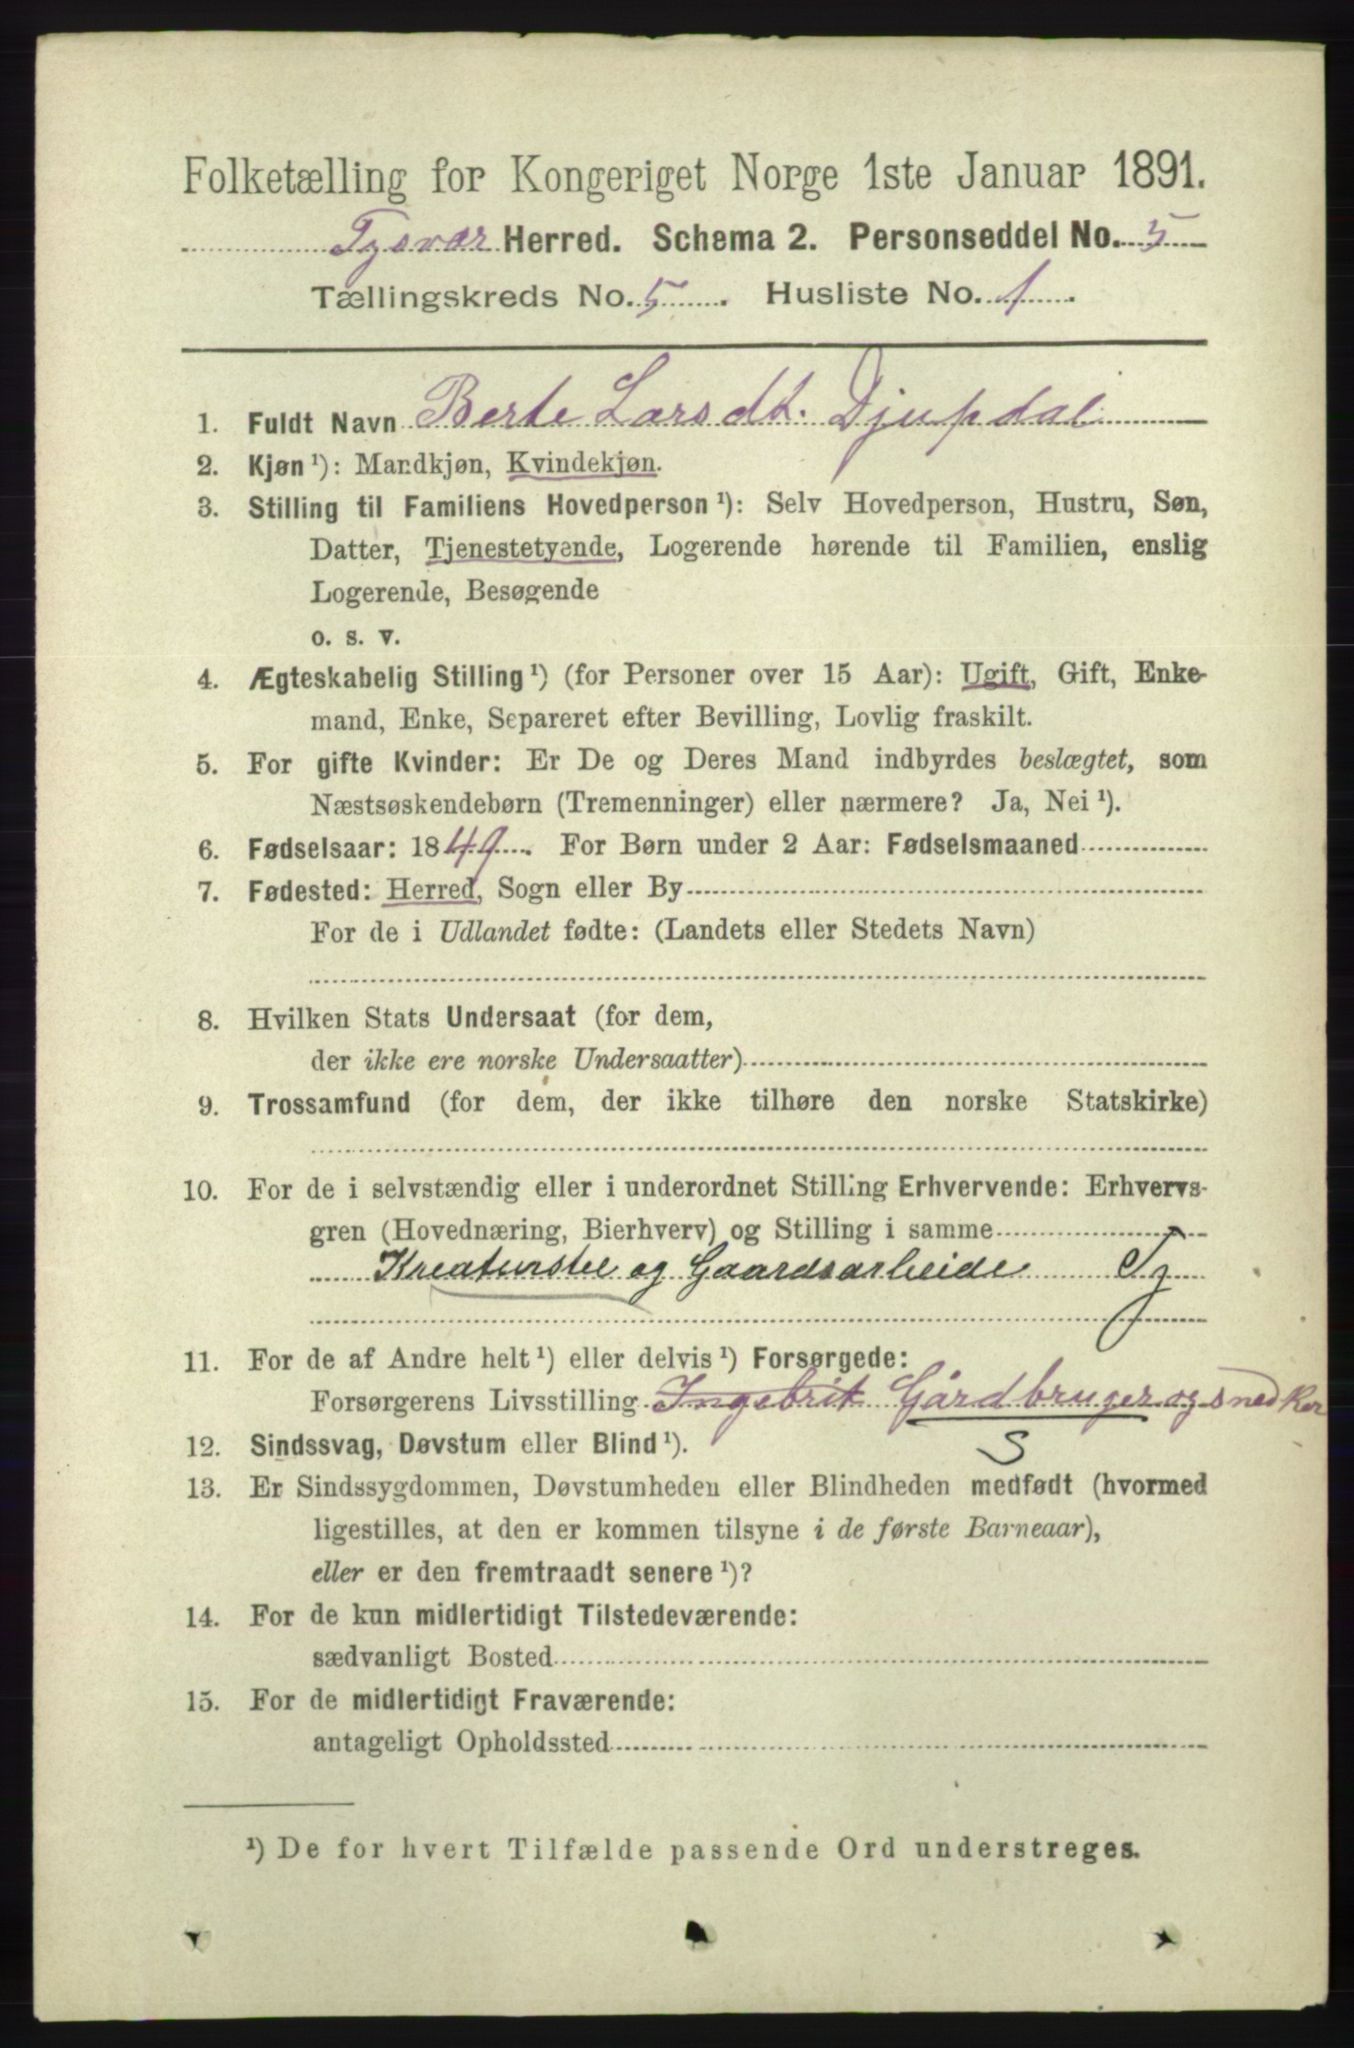 Folketælling for Kongeriget Norge 1ste Januar 1891.
Tysvær Herred. Schema 2. Personseddel No. 5
Tællingskreds No. 5. Husliste No. 1.
1. Fuldt Navn Berte Larsdt. Djupdal
2. Kjøn ¹): Mandkjøn, Kvindekjøn.
3. Stilling til Familiens Hovedperson ¹): Selv Hovedperson, Hustru, Søn,
Datter, Tjenestetyende, Logerende hørende til Familien, enslig
Logerende, Besøgende
o. s. v.
4. Ægteskabelig Stilling ¹) (for Personer over 15 Aar): Ugift, Gift, Enke-
mand, Enke, Separeret efter Bevilling, Lovlig fraskilt.
5. For gifte Kvinder: Er De og Deres Mand indbyrdes beslægtet, som
Næstsøskendebørn (Tremenninger) eller nærmere? Ja, Nei ¹).
6. Fødselsaar: 1849. For Børn under 2 Aar: Fødselsmaaned
7. Fødested: Herred, Sogn eller By
For de i Udlandet fødte: (Landets eller Stedets Navn)
8. Hvilken Stats Undersaat (for dem,
der ikke ere norske Undersaatter)
9. Trossamfund (for dem, der ikke tilhøre den norske Statskirke)
10. For de i selvstændig eller i underordnet Stilling Erhvervende: Erhvervs-
gren (Hovednæring, Bierhverv) og Stilling i samme
Kreaturstel og Gaardsarbeide Tj
11. For de af Andre helt ¹) eller delvis ¹) Forsørgede:
Forsørgerens Livsstilling Ingebrik Gårdbruger og snedker
S
12. Sindssvag, Døvstum eller Blind ¹).
13. Er Sindssygdommen, Døvstumheden eller Blindheden medfødt (hvormed
ligestilles, at den er kommen tilsyne i de første Barneaar),
eller er den fremtraadt senere ¹)?
14. For de kun midlertidigt Tilstedeværende:
sædvanligt Bosted
15. For de midlertidigt Fraværende:
antageligt Opholdssted
¹) De for hvert Tilfælde passende Ord understreges.